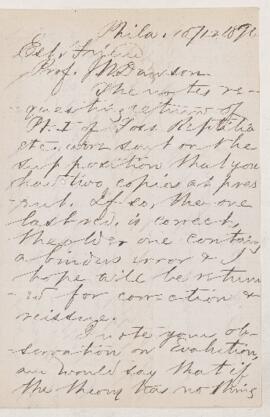 Phila. 10/12 1890
Est. Friend
Prof. J W Dawson
The notes re-
questing return of
Pt. I of Foss. Reptilia
etc. was sent on the
supposition that you
had two copies at pres
ent. If so, the one
last recd. is correct,
the older one contains
a binders error & I
hope will be return
ed for correction &
reissue.
I note your ob-
servation on Evolution,
and would say that if
the theory has nothing